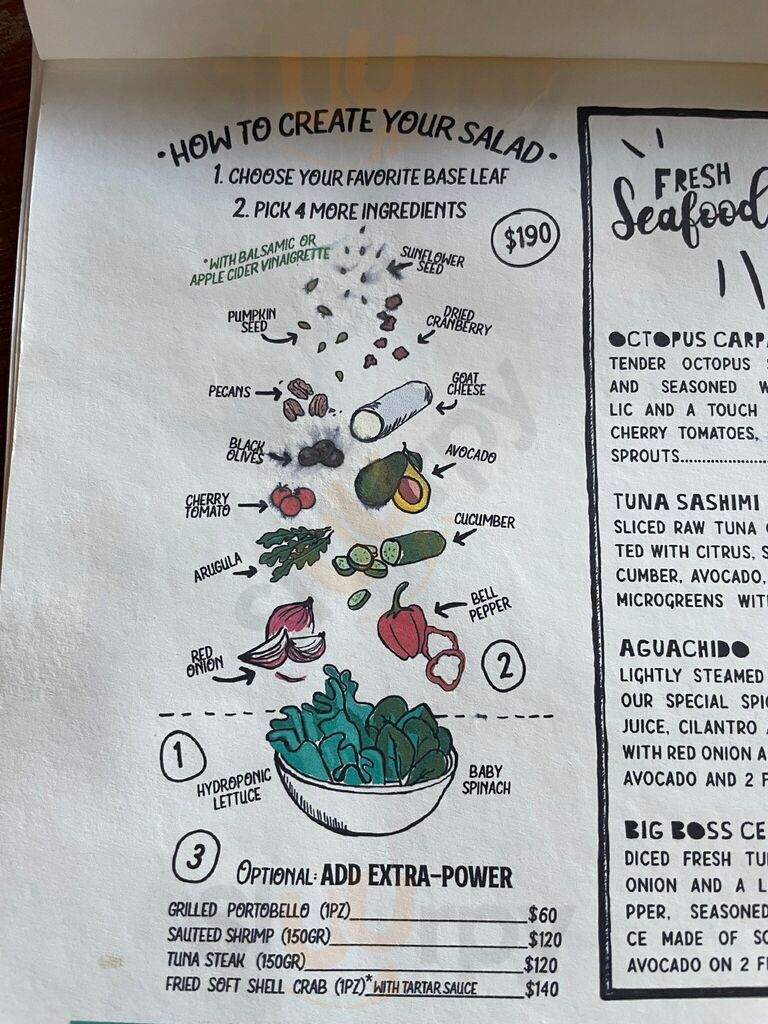 • HOW TO CREATE YOUR SALAD •
1. CHOOSE YOUR FAVORITE BASE LEAF
2. PICK 4 MORE INGREDIENTS
$190
*WITH BALSAMIC OR
APPLE CIDER VINAIGRETTE
SUNFLOWER
SEED
PUMPKIN
SEED
DRIED
CRANBERRY
PECANS
GOAT
CHEESE
BLACK
OLIVES
AVOCADO
CHERRY
TOMATO
CUCUMBER
ARUGULA
BELL
PEPPER
RED
ONION
2
1
HYDROPONIC
LETTUCE
BABY
SPINACH
3
OPTIONAL: ADD EXTRA-POWER
GRILLED PORTOBELLO (1PZ) $60
SAUTEED SHRIMP (150GR) $120
TUNA STEAK (150GR) $120
FRIED SOFT SHELL CRAB (1PZ)* WITH TARTAR SAUCE $140
FRESH
Seafood
OCTOPUS
TENDER OCTOPUS
AND SEASONED
LIC AND A TOUCH
CHERRY TOMATOES,
SPROUTS..............
TUNA SASHIMI
SLICED RAW TUNA
TED WITH CITRUS,
CUMBER, AVOCADO,
MICROGREENS
AGUACHIDO
LIGHTLY STEAMED
OUR SPECIAL
JUICE, CILANTRO
WITH RED ONION
AVOCADO AND 2
BIG BOSS
DICED FRESH
ONION AND A
PPER, SEASONED
CE MADE OF
AVOCADO ON 2